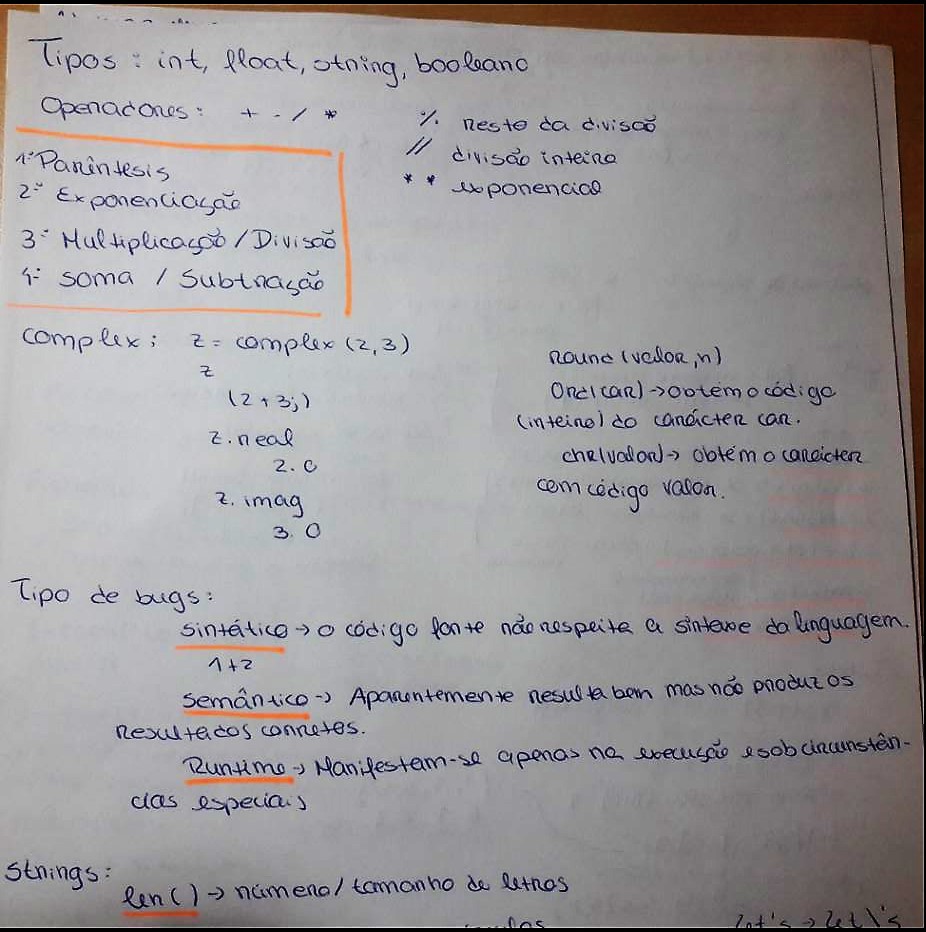 Tipos : int, float, string, booleano
Operadores: + - / *
% resto da divisão
// divisão inteira
** exponencial
1º Parêntesis
2º Exponenciação
3º Multiplicação / Divisão
4º Soma / Subtração
complex: z = complex (2,3)
z
(2+3j)
z.real
2.0
z.imag
3.0
round (valor, n)
Ord(car) -> obtém o código
(inteiro) do carácter car.
chr(valor) -> obtém o carácter
com código valor.
Tipo de bugs:
sintático -> o código fonte não respeita a sintaxe da linguagem.
1+2
semântico -> Aparentemente resulta bem mas não produz os
resultados corretos.
Runtime -> Manifestam-se apenas na execução e sob circunstân-
cias especiais
Strings:
len() -> número/tamanho de letras
let's -> let\'s